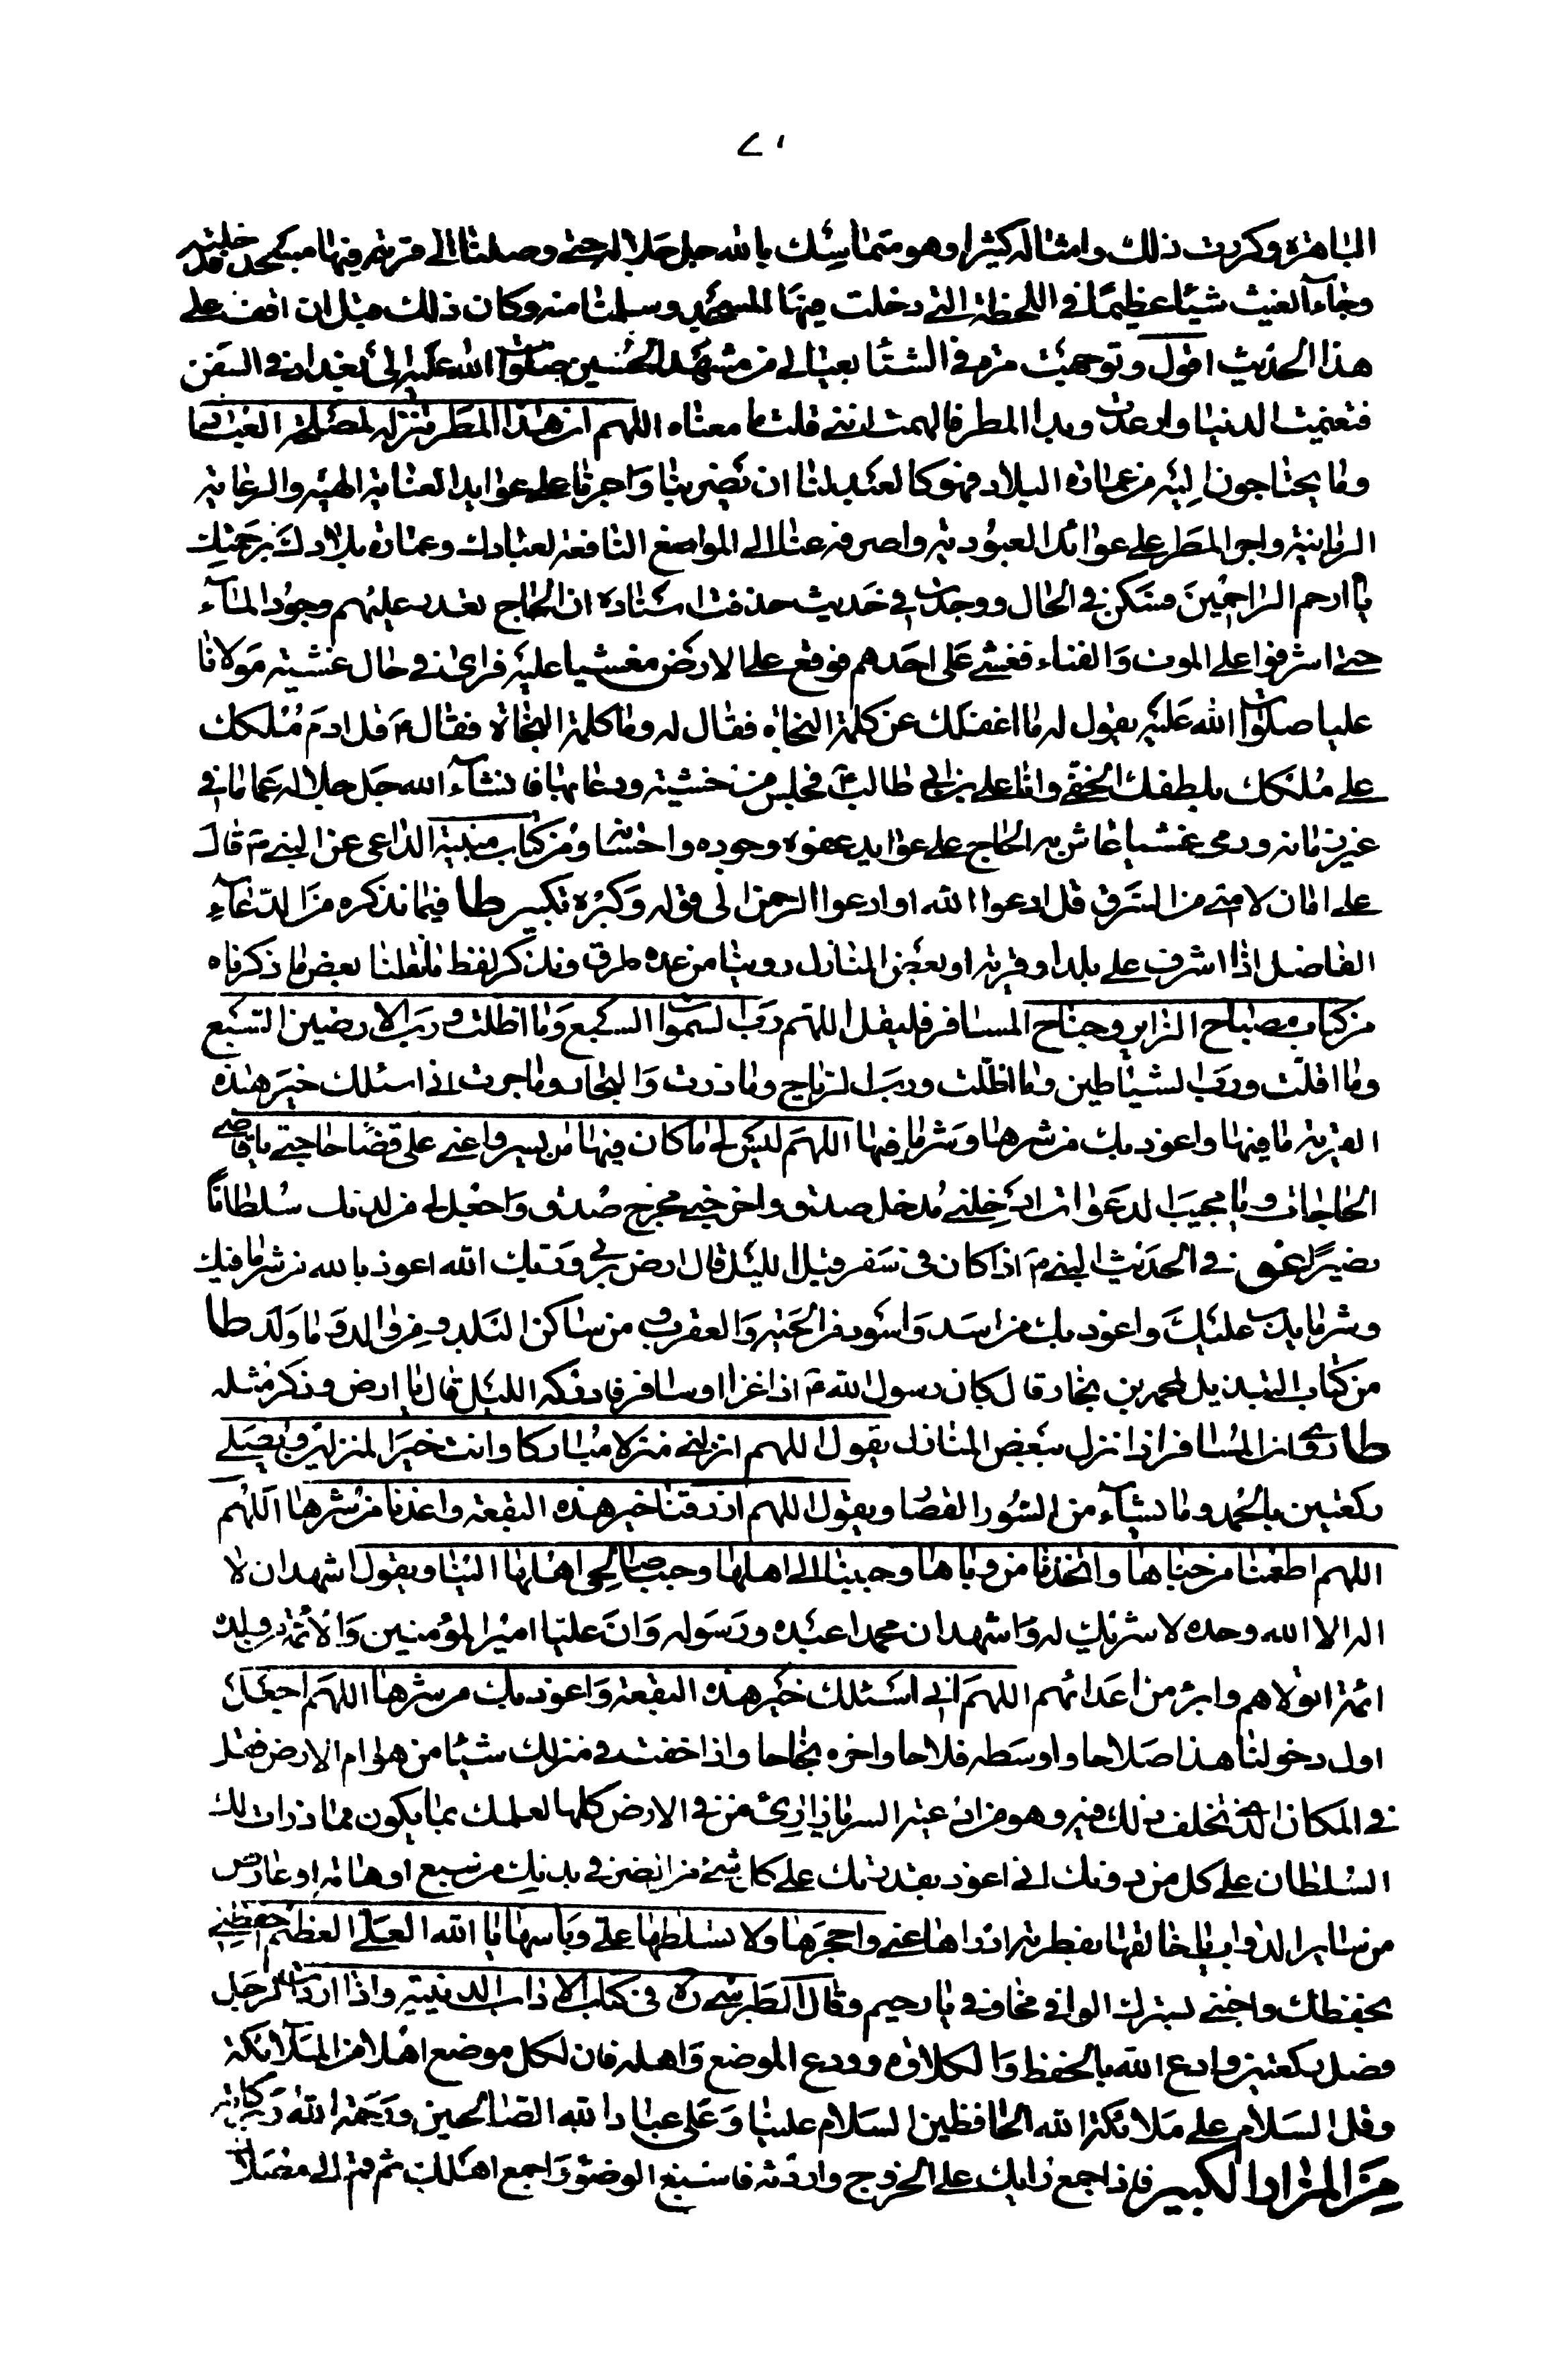 ٧١
الباهرة وكررت ذلك وامثاله كثيرا وهو متماسك بالله جل جلاله حتى وصلنا الى قرية فيها مسجد فدخلته
وجاء الغيث شيئا عظيما في اللحظة التي دخلت فيها المسجد وسلمنا منه وكان ذلك قبل ان اقف على
هذا الحديث اقول وتوجهت مرة في الشتا بعيالي من مشهد الحسين صلوات الله عليه الى بغداد في السفن
فتغيمت الدنيا وارعدت وبدا المطر فالهمت انني قلت ما معناه اللهم ان هذا المطر تنزله لمصلحة العباد
وما يحتاجون اليه من عمارة البلاد فهو كالعبد لنا ان يضر بنا واجرنا على عوايد العناية الالهية والرعاية
الربانية واجر المطر على عوائد العبودية واصرفه عنا الى المواضع النافعة لعبادك وعمارة بلادك برحمتك
يا ارحم الراحمين فسكن في الحال ووجدت في حديث حذفت اسناده ان الحاج تعذر عليهم وجود الماء
حتى اشرفوا على الموت والفناء فغشي على احدهم فوقع على الارض مغشيا عليه فراى في حال غشيته مولانا
عليا صلوات الله عليه يقول له ما اغفلك عن كلمة النجاة فقال له وما كلمة النجاة فقال ع قل ادم ملكك
على ملكك بلطفك الخفي وانا علي بن ابي طالب ع فجلس من غشيته ودعا بها فانشأ الله جل جلاله غماما في
غير زمانه ورمى غيثا عاش به الحاج على عوايد عفوه وجوده واحسانه ومن كتاب منية الداعي عن النبي ص قال
على امان لامتي من السرق قل ادعوا الله او ادعوا الرحمن الى قوله وكبره تكبيرا طا فيما نذكره من الدعاء
الفاضل اذا اشرف على بلد او قرية او بعض المنازل روينا من عدة طرق ونذكر لفظ ما نقلنا بعض ما ذكرناه
من كتاب مصباح الزاير وجناح المسافر فليقل اللهم رب السموات السبع وما اظلت ورب الارضين السبع
وما اقلت ورب الشياطين وما اظلت ورب الرياح وما ذرت والبحار وما جرت اني اسئلك خير هذه
القرية ما فيها واعوذ بك من شرها وشر ما فيها اللهم يسر لي ما كان فيها من يسر واعني على قضا حاجتي يا قاضي
الحاجات ويا مجيب الدعوات ادخلني مدخل صدق واخرجني مخرج صدق واجعل لي من لدنك سلطانا
نصيرا في الحديث النبي ص اذا كان في سفر فيل الليل قال ارض ربي وربك الله اعوذ بالله من شر ما فيك
وشر ما يدب عليك واعوذ بك من اسد واسود من الحية والعقرب ومن ساكن البلد ومن والد وما ولد طا
من كتاب التذييل لمحمد بن نجار قال كان رسول الله ص اذا غزا او سافر فادركه الليل قال يا ارض وذكر مثله
طا روي ان المسافر اذا نزل ببعض المنازل يقول اللهم انزلني منزلا مباركا وانت خير المنزلين ويصلي
ركعتين بالحمد وما يشاء من السور القصار ويقول اللهم ارزقنا خير هذه البقعة واعذنا من شرها اللهم
اللهم اطعمنا من جناها واعذنا من وباها وحببنا الى اهلها وحبب صالحي اهلها الينا ويقول اشهد ان لا
اله الا الله وحده لا شريك له واشهد ان محمدا عبده ورسوله وان عليا امير المؤمنين والائمة من ولده
ائمة اتولاهم وابرء من اعدائهم اللهم اني اسئلك خير هذه البقعة واعوذ بك من شرها اللهم اجعل
اول دخولنا هذا صلاحا واوسطه فلاحا واخره نجاحا واذا خفت في منزلك شيئا من هوام الارض فقل
في المكان الذي تخاف ذلك فيه وهو من ادعية السر يا ذارئ من في الارض كلها لعلمك بما يكون مما ذرات لك
السلطان على كل من دونك اني اعوذ بقدرتك على كل شيء من الضر في بدني من سبع او هامة او عارض
من ساير الدواب يا خالقها بفطرته ادراها عني واحجزها ولا تسلطها علي وباسها يا الله العلي العظيم احفظني
بحفظك واجنني بسترك الوافي من مخاوفي يا رحيم وقال الطبرسي ره في كتاب الاداب الدينية واذا اردت الرحيل
فصل ركعتين وادع الله بالحفظ والكلاءة وودع الموضع واهله فان لكل موضع اهلا من الملائكة
وقل السلام على ملائكة الله الحافظين السلام علينا وعلى عباد الله الصالحين ورحمة الله وبركاته
من المزار الكبير فاذا اجمع رايك على الخروج واردته فاسبغ الوضوء واجمع اهلك ثم قم الى مصلاك